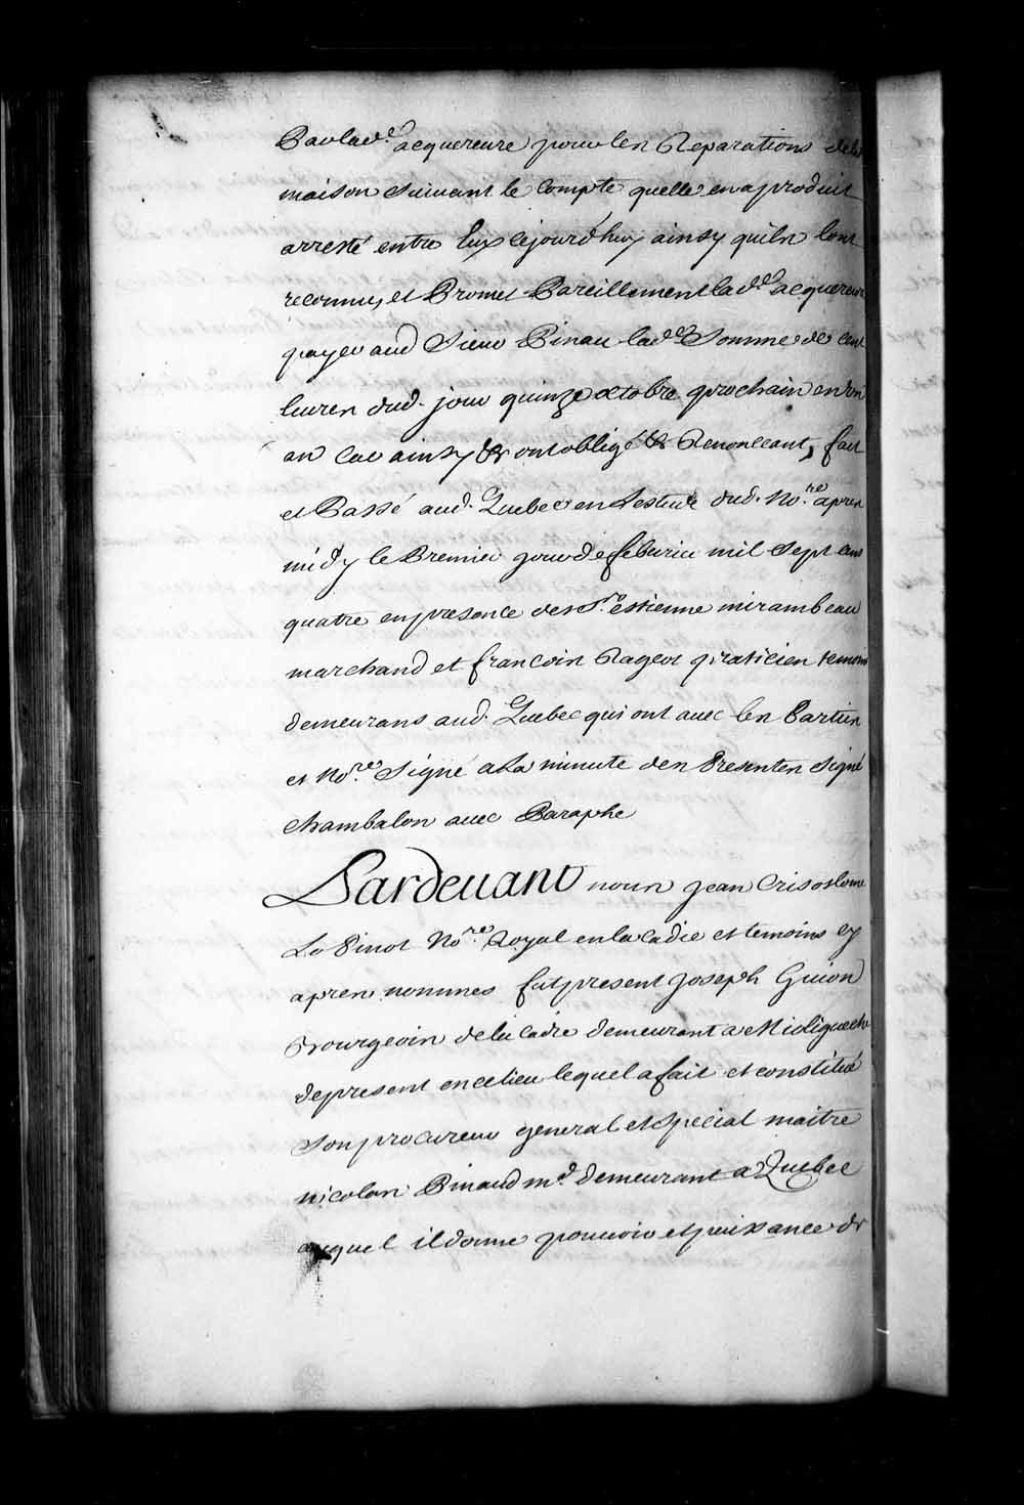 Par lad.e acquereure pour les Reparations de la
maison suivant le Compte quelle en a produit
arresté entre Eux cejourd'huy ainsy quils lont
reconnu, et Promet Pareillement lad.e acquereure
payer aud Sieur Pinau lad.e Somme de Cent
liures dud. jour quinze octobre prochain en Un
an Car ainsy &c ont obligé &c Renonceant, fait
et Passé aud. Quebec en Lestude dud. No.re apres
midy le Premier jour de feburier mil Sept cens
quatre en presence des S.rs estienne mirambeau
marchand et francois Rageot praticien temoins
demeurans aud. Quebec qui ont auec les Parties
et No.re Signé a La minute des Presentes Signé
Chambalon auec Paraphe
Pardeuant nous Jean Crisostome
Lo Pinot No.re Royal en lacadie et temoins cy
apres nommes fut present Joseph Guion
Bourgeois de lacadie demeurant a
de present en ce lieu lequel a fait et constitué
Son procureur general et special maitre
nicolas Pinaud m.d demeurant a Quebec
auquel il donne pouuoir et puissance de